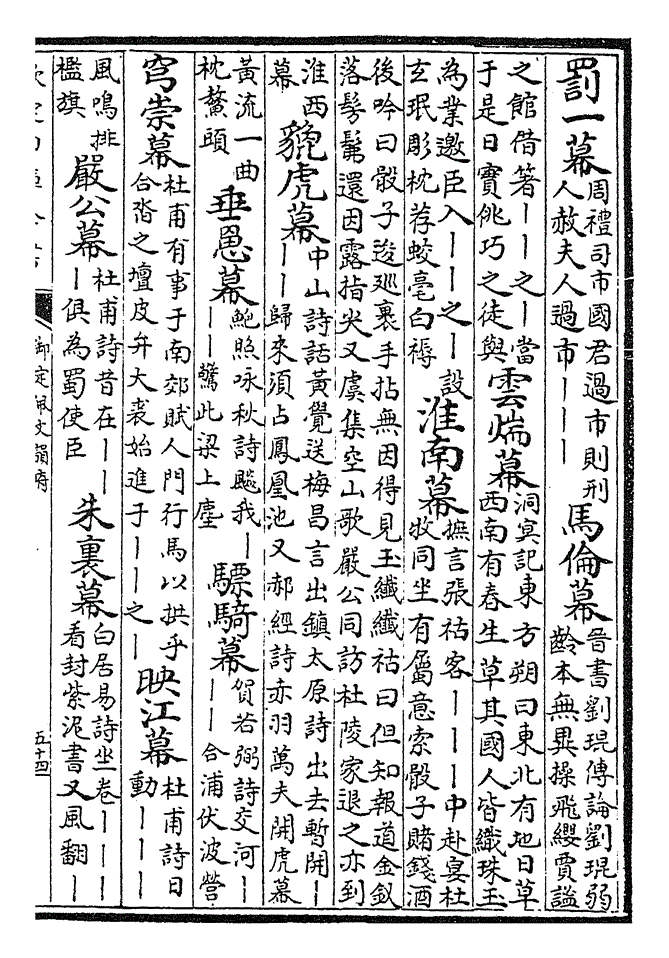 罰一幕
周禮司市國君過市則刑
人赦夫人過市丨丨丨
馬倫幕
晉書劉琨傳論劉琨弱
齡本無異操飛纓賈謐
之館借箸丨丨之丨當
于是日實佻巧之徒與
雲端幕
洞冥記東方朔曰東北有地日草
西南有春生草其國人皆織珠玉
為業邀臣入丨丨之丨設
玄珉彫枕荐蛟毫白褥
淮南幕
摭言張祜客丨丨丨中赴宴杜
牧同坐有屬意索骰子賭錢酒
後吟曰骰子逡廵裹手拈無因得見玉纖纖祜曰但知報道金釵
落髣髴還因露指尖又虞集空山歌嚴公同訪杜陵家退之亦到
淮西
幕
貔虎幕
中山詩話黃覺送梅昌言出鎮太原詩出去暫開丨
丨丨歸來須占鳳凰池又郝經詩赤羽萬夫開虎幕
黃流一曲
枕鰲頭
垂罳幕
鮑照咏秋詩颸我丨
丨丨驚此梁上塵
驃騎幕
賀若弼詩交河丨
丨丨合浦伏波營
穹崇幕
杜甫有事于南郊賦人門行馬以拱乎
合沓之壇皮弁大裘始進于丨丨之丨
映江幕
杜甫詩日
動丨丨丨
風鳴排
檻旗
嚴公幕
杜甫詩昔在丨丨
丨俱為蜀使臣
朱裏幕
白居易詩坐卷丨丨丨
看封紫泥書又風翻丨
欽定四庫全書
御定佩文韻府
五十四